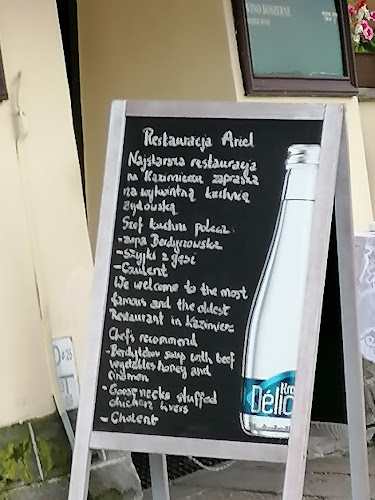 WINO KOSZERNE
Restauracja Ariel
Najstarsza restauracja
na Kazimierzu zaprasza
na wykwintną kuchnię
żydowską
Szef kuchni poleca
-zupa Berdyczowska
-Szyjki z gęsi
-Czulent
We welcome to the most
famous and the oldest
Restaurant in Kazimierz
Chef's recommend
-Berdytchov soup with beef
vegetables honey and
cinamon
-Goose necks stuffed
chicken livers
-Cholent